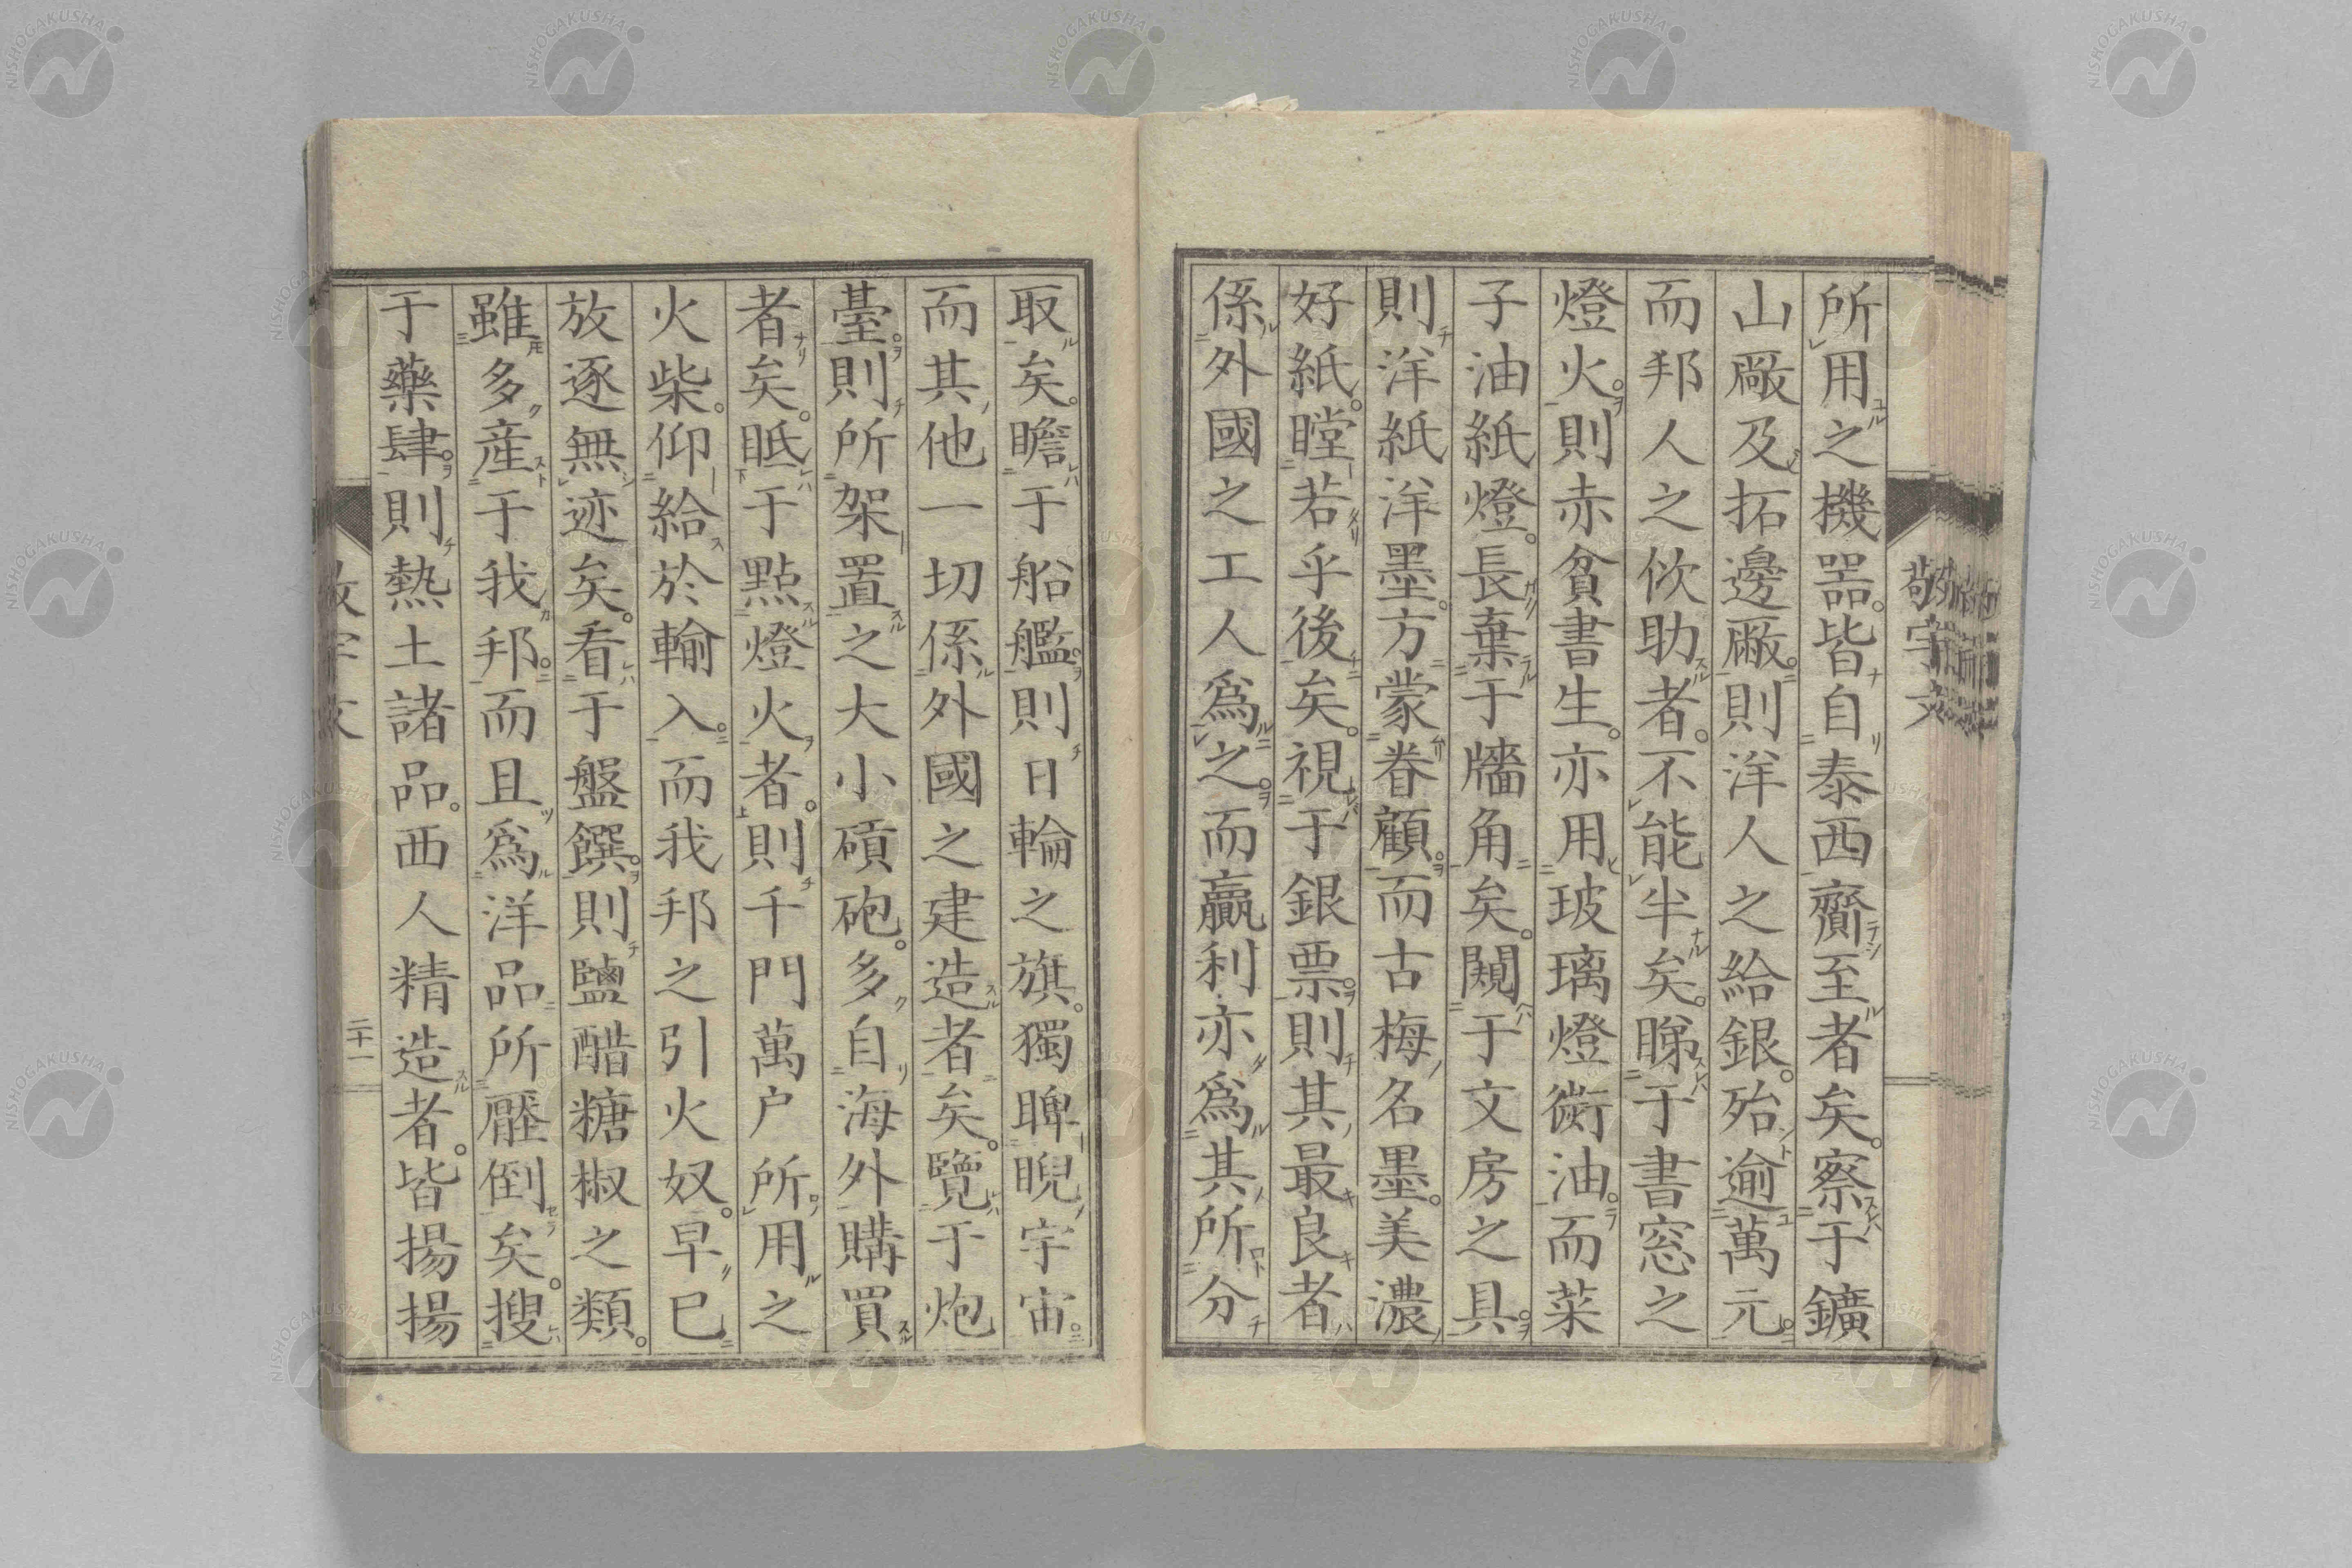 所用之機器。皆自泰西齎至者矣。察于鑛
山廠及拓邊廠。則洋人之給銀。殆逾萬元。
而邦人之佽助者。不能半矣。睇于書窓之
燈火。則赤貧書生。亦用玻璃燈衒油。而菜
子油紙燈。長棄于牆角矣。闚于文房之具。
則洋紙洋墨。方蒙眷顧。而古梅名墨。美濃
好紙。瞠若乎後矣。視于銀票。則其最良者
係外國之工人爲之。而贏利亦爲其所分
取矣。瞻于船艦。則日輪之旗。獨睥睨宇宙。
而其他一切係外國之建造者矣。覽于炮
臺。則所架置之大小礮砲。多自海外購買
者矣。眡于點燈火者。則千門萬户所用之
火柴。仰給於輸入。而我邦之引火奴。早已
放逐無迹矣。看于盤饌。則鹽醋糖椒之類。
雖多産于我邦。而且爲洋品所壓倒矣。搜
于藥肆。則熱土諸品。西人精造者。皆揚揚
敬宇文
二十一
NISHOGAKUSHA